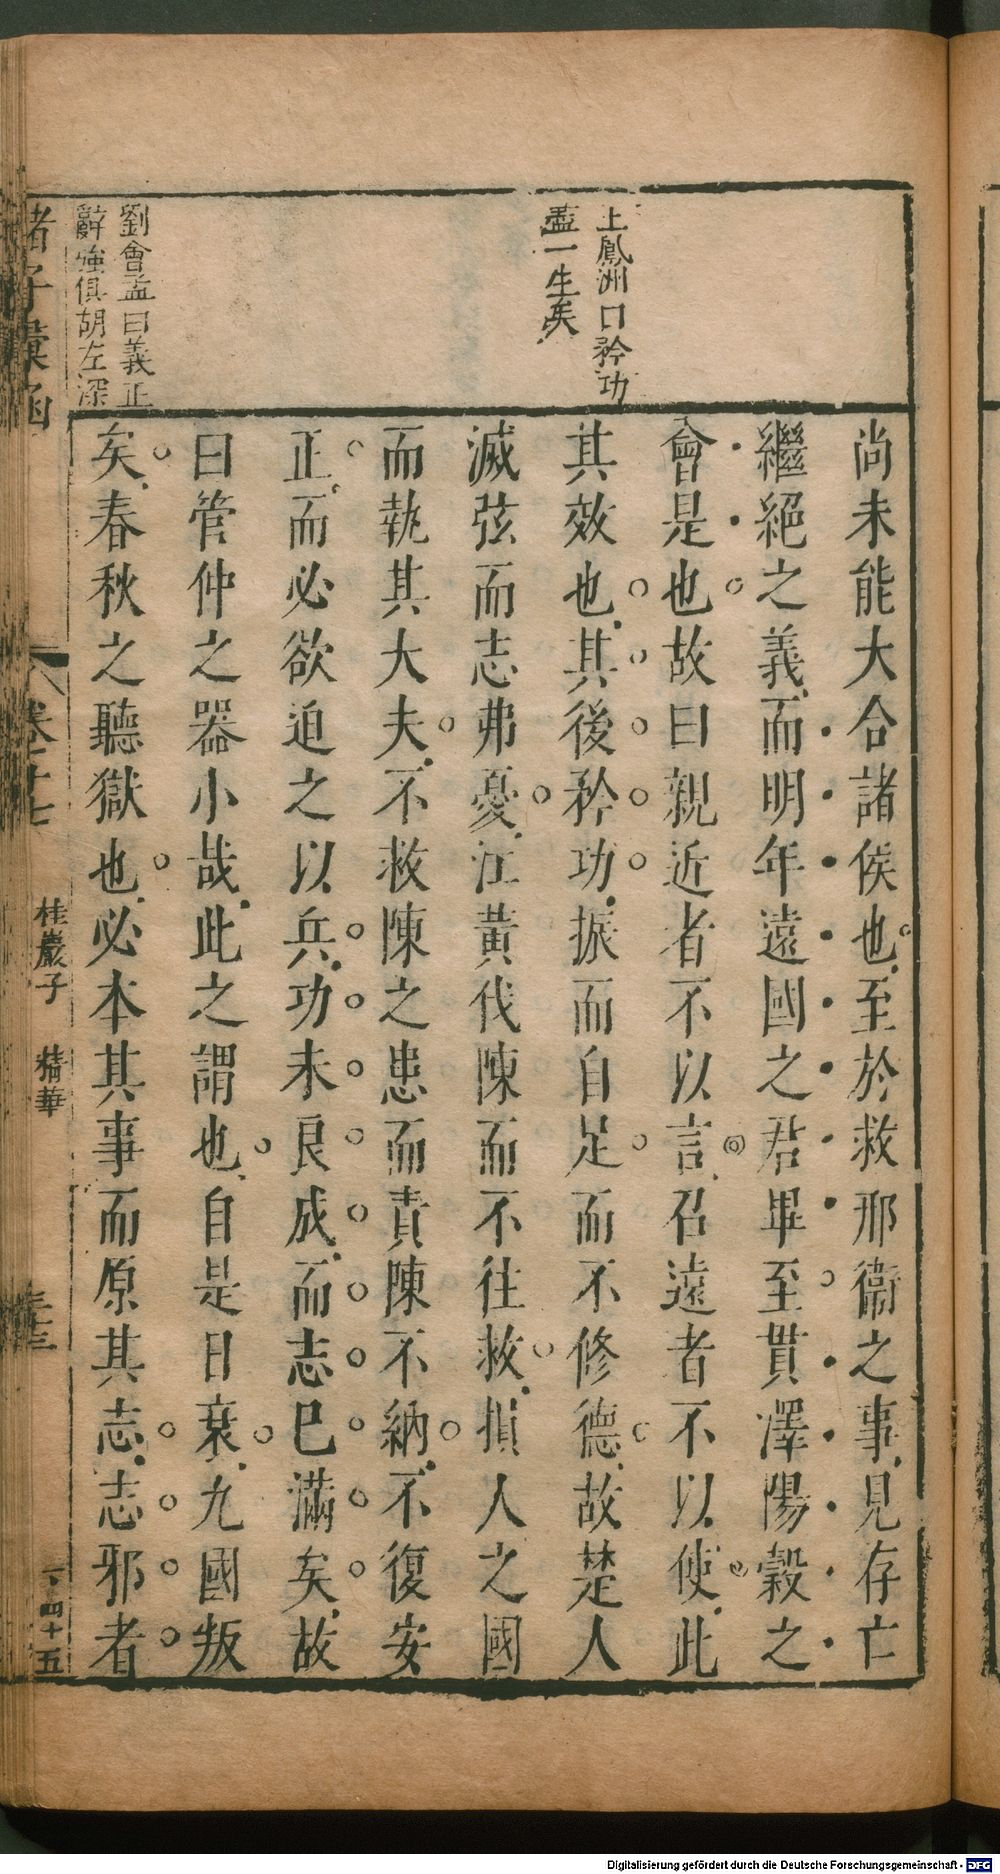 王鳳洲曰矜功
盡一生矣
劉會孟曰義正
辭強俱胡左深
尚未能大合諸侯也至於救邢衞之事見存亡
繼絕之義而明年遠國之君畢至貫澤陽穀之
會是也故曰親近者不以言召遠者不以使此
其效也其後矜功振而自足而不修德故楚人
滅弦而志弗憂江黃伐陳而不往救損人之國
而執其大夫不救陳之患而責陳不納不復安
正而必欲迫之以兵功未良成而志已滿矣故
曰管仲之器小哉此之謂也自是日衰九國叛
矣春秋之聽獄也必本其事而原其志志邪者
諸子彙函
卷十七
桂巖子 精華
四十五
Digitalisierung gefördert durch die Deutsche Forschungsgemeinschaft - DFG